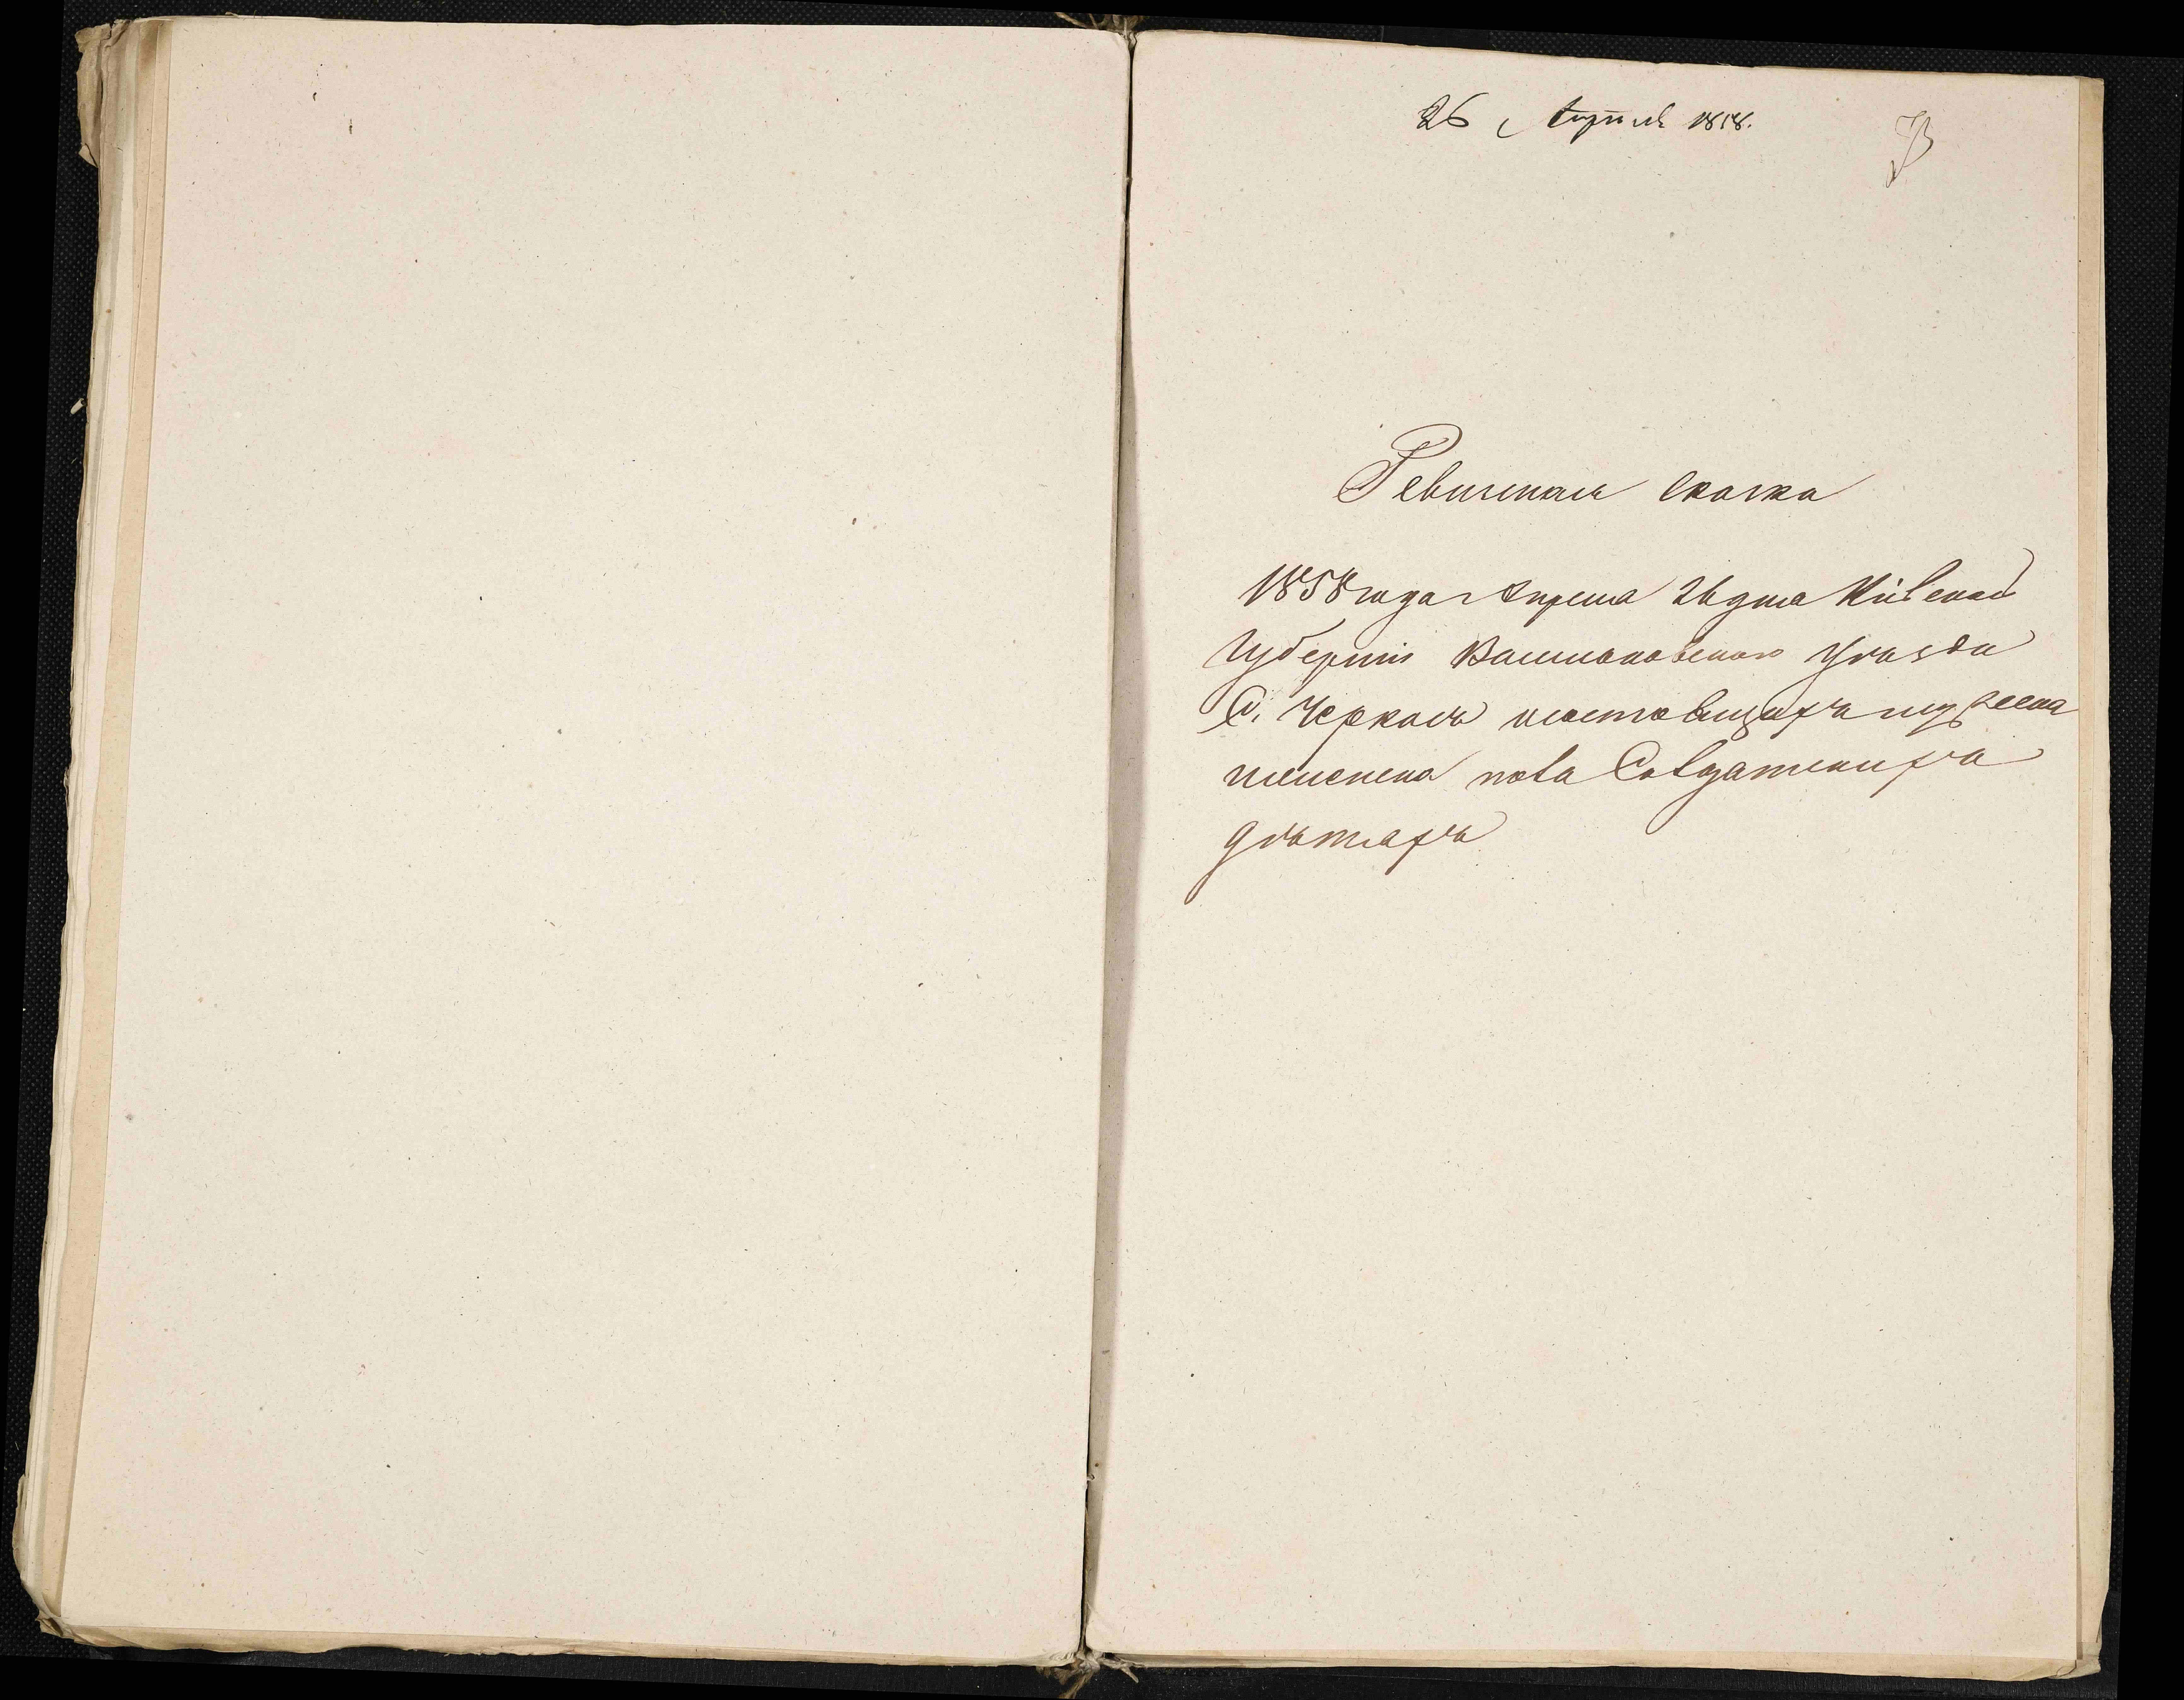 26 Апреля 1858.
Ревизская сказка
1858 года Апреля 26 дня Кіевской
Губерніи Васильковскаго Уѣзда
С. Черкасъ о состоящихъ мужеска
женска пола Солдатскихъ
дѣтяхъ